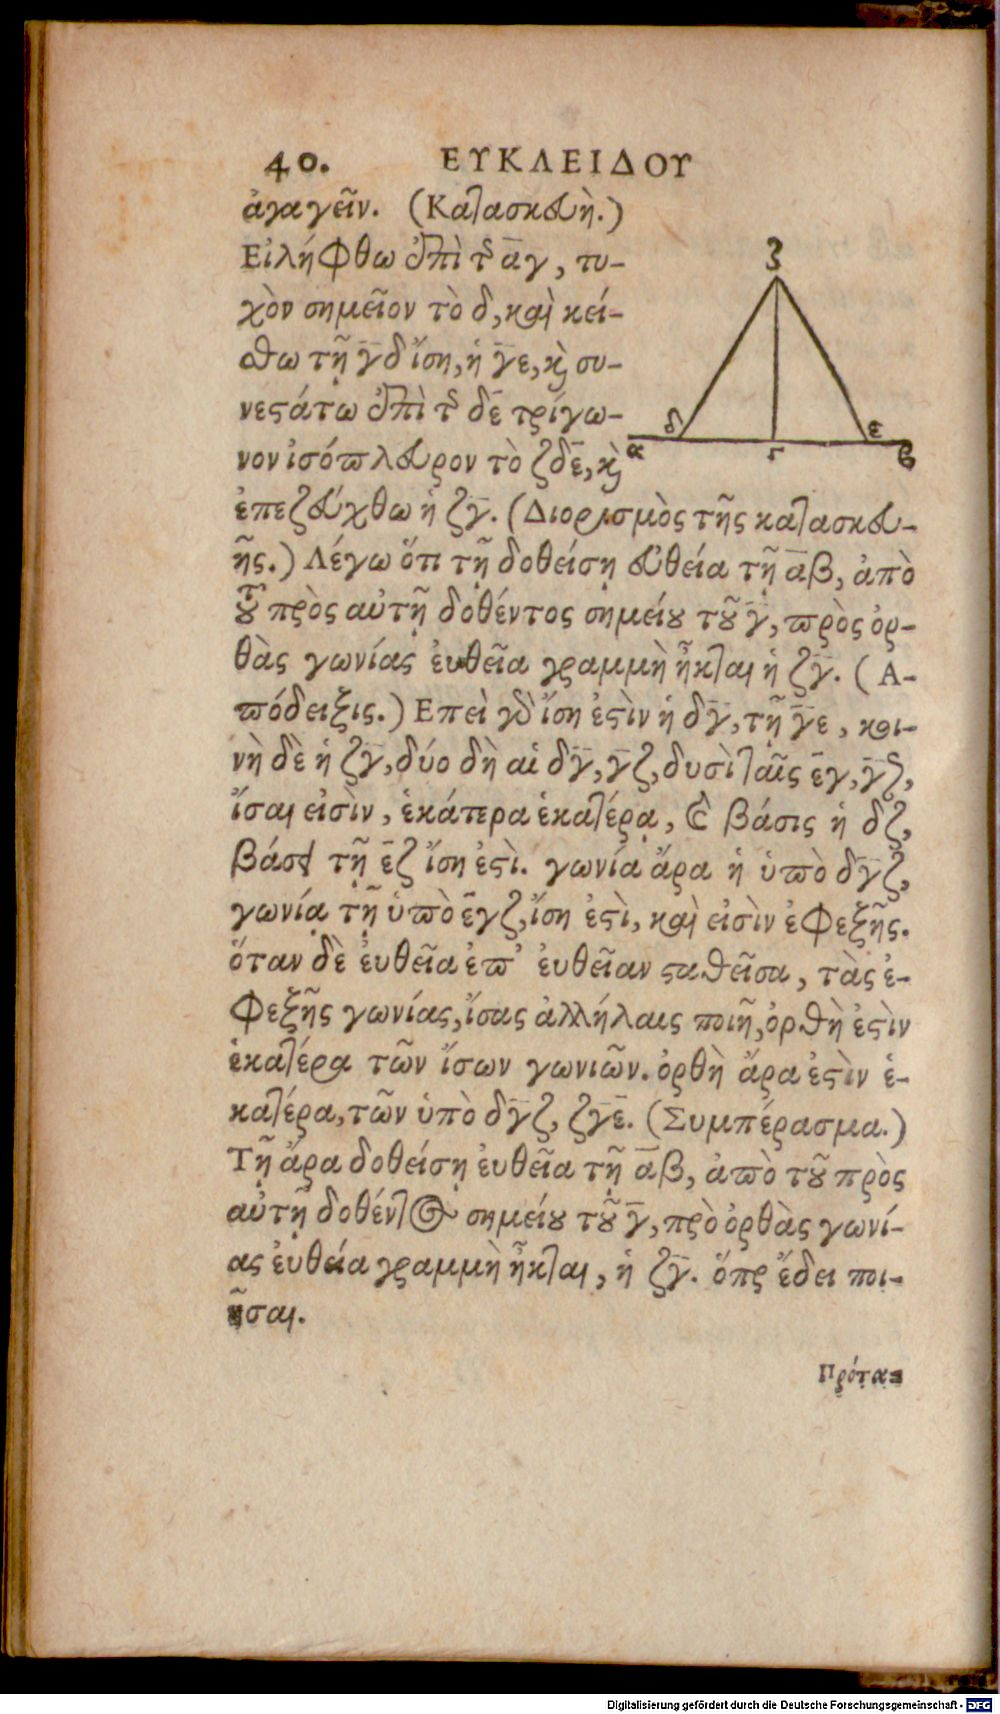 40. ΕΥΚΛΕΙΔΟΥ
ἀγαγεῖν. (Κατασκευὴ.)
Εἰλήφθω ἐπὶ τῆς α̅γ, τυ-
χὸν σημεῖον τὸ δ, καὶ κεί-
σθω τῇ γ̅δ ἴση, ἡ γ̅ε, καὶ συ-
νεστάτω ἐπὶ τῆς δε̅ τρίγω-
νον ἰσόπλευρον τὸ ζδε̅, καὶ
ἐπεζεύχθω ἡ ζγ̅. (Διορισμὸς τῆς κατασκευ-
ῆς.) Λέγω ὅτι τῇ δοθείσῃ εὐθεία τῇ α̅β, ἀπὸ
τοῦ πρὸς αὐτῇ δοθέντος σημείου τοῦ γ̅, πρὸς ὀρ-
θὰς γωνίας ἐυθεῖα γραμμὴ ἦκται ἡ ζγ̅. (Α-
πόδειξις.) Επεὶ γὰρ ἴση ἐστὶν ἡ δγ̅, τῇ γ̅ε, κοι-
νὴ δὲ ἡ ζγ̅, δύο δὴ αἱ δγ̅, γ̅ζ, δυσὶ ταῖς ε̅γ, γ̅ζ,
ἴσαι εἰσὶν, ἑκάτερα ἑκατέρᾳ, καὶ βάσις ἡ δζ,
βάσει τῇ ε̅ζ ἴση ἐστὶ. γωνία ἄρα ἡ ὑπὸ δγ̅ζ,
γωνίᾳ τῇ ὑπὸ ε̅γζ, ἴση ἐστὶ, καὶ εἰσὶν ἐφεξῆς.
ὅταν δὲ ἐυθεῖα ἐπ' ἐυθεῖαν σταθεῖσα, τὰς ἐ-
φεξῆς γωνίας, ἴσας ἀλλήλαις ποιῇ, ὀρθὴ ἐστὶν
ἑκατέρα τῶν ἴσων γωνιῶν. ὀρθὴ ἄρα ἐστὶν ἑ-
κατέρα, τῶν ὑπὸ δγ̅ζ, ζγ̅ε̅. (Συμπέρασμα.)
Τῇ ἄρα δοθείσῃ ἐυθεῖα τῇ α̅β, ἀπὸ τοῦ πρὸς
αὐτῇ δοθέντος σημείου τοῦ γ̅, πρὸ ὀρθὰς γωνί-
ας ἐυθεία γραμμὴ ἦκται, ἡ ζγ̅. ὅπερ ἔδει ποι-
ῆσαι.
Πρότα-
ζ
δ
ε
α
γ
β
Digitalisierung gefördert durch die Deutsche Forschungsgemeinschaft - DFG